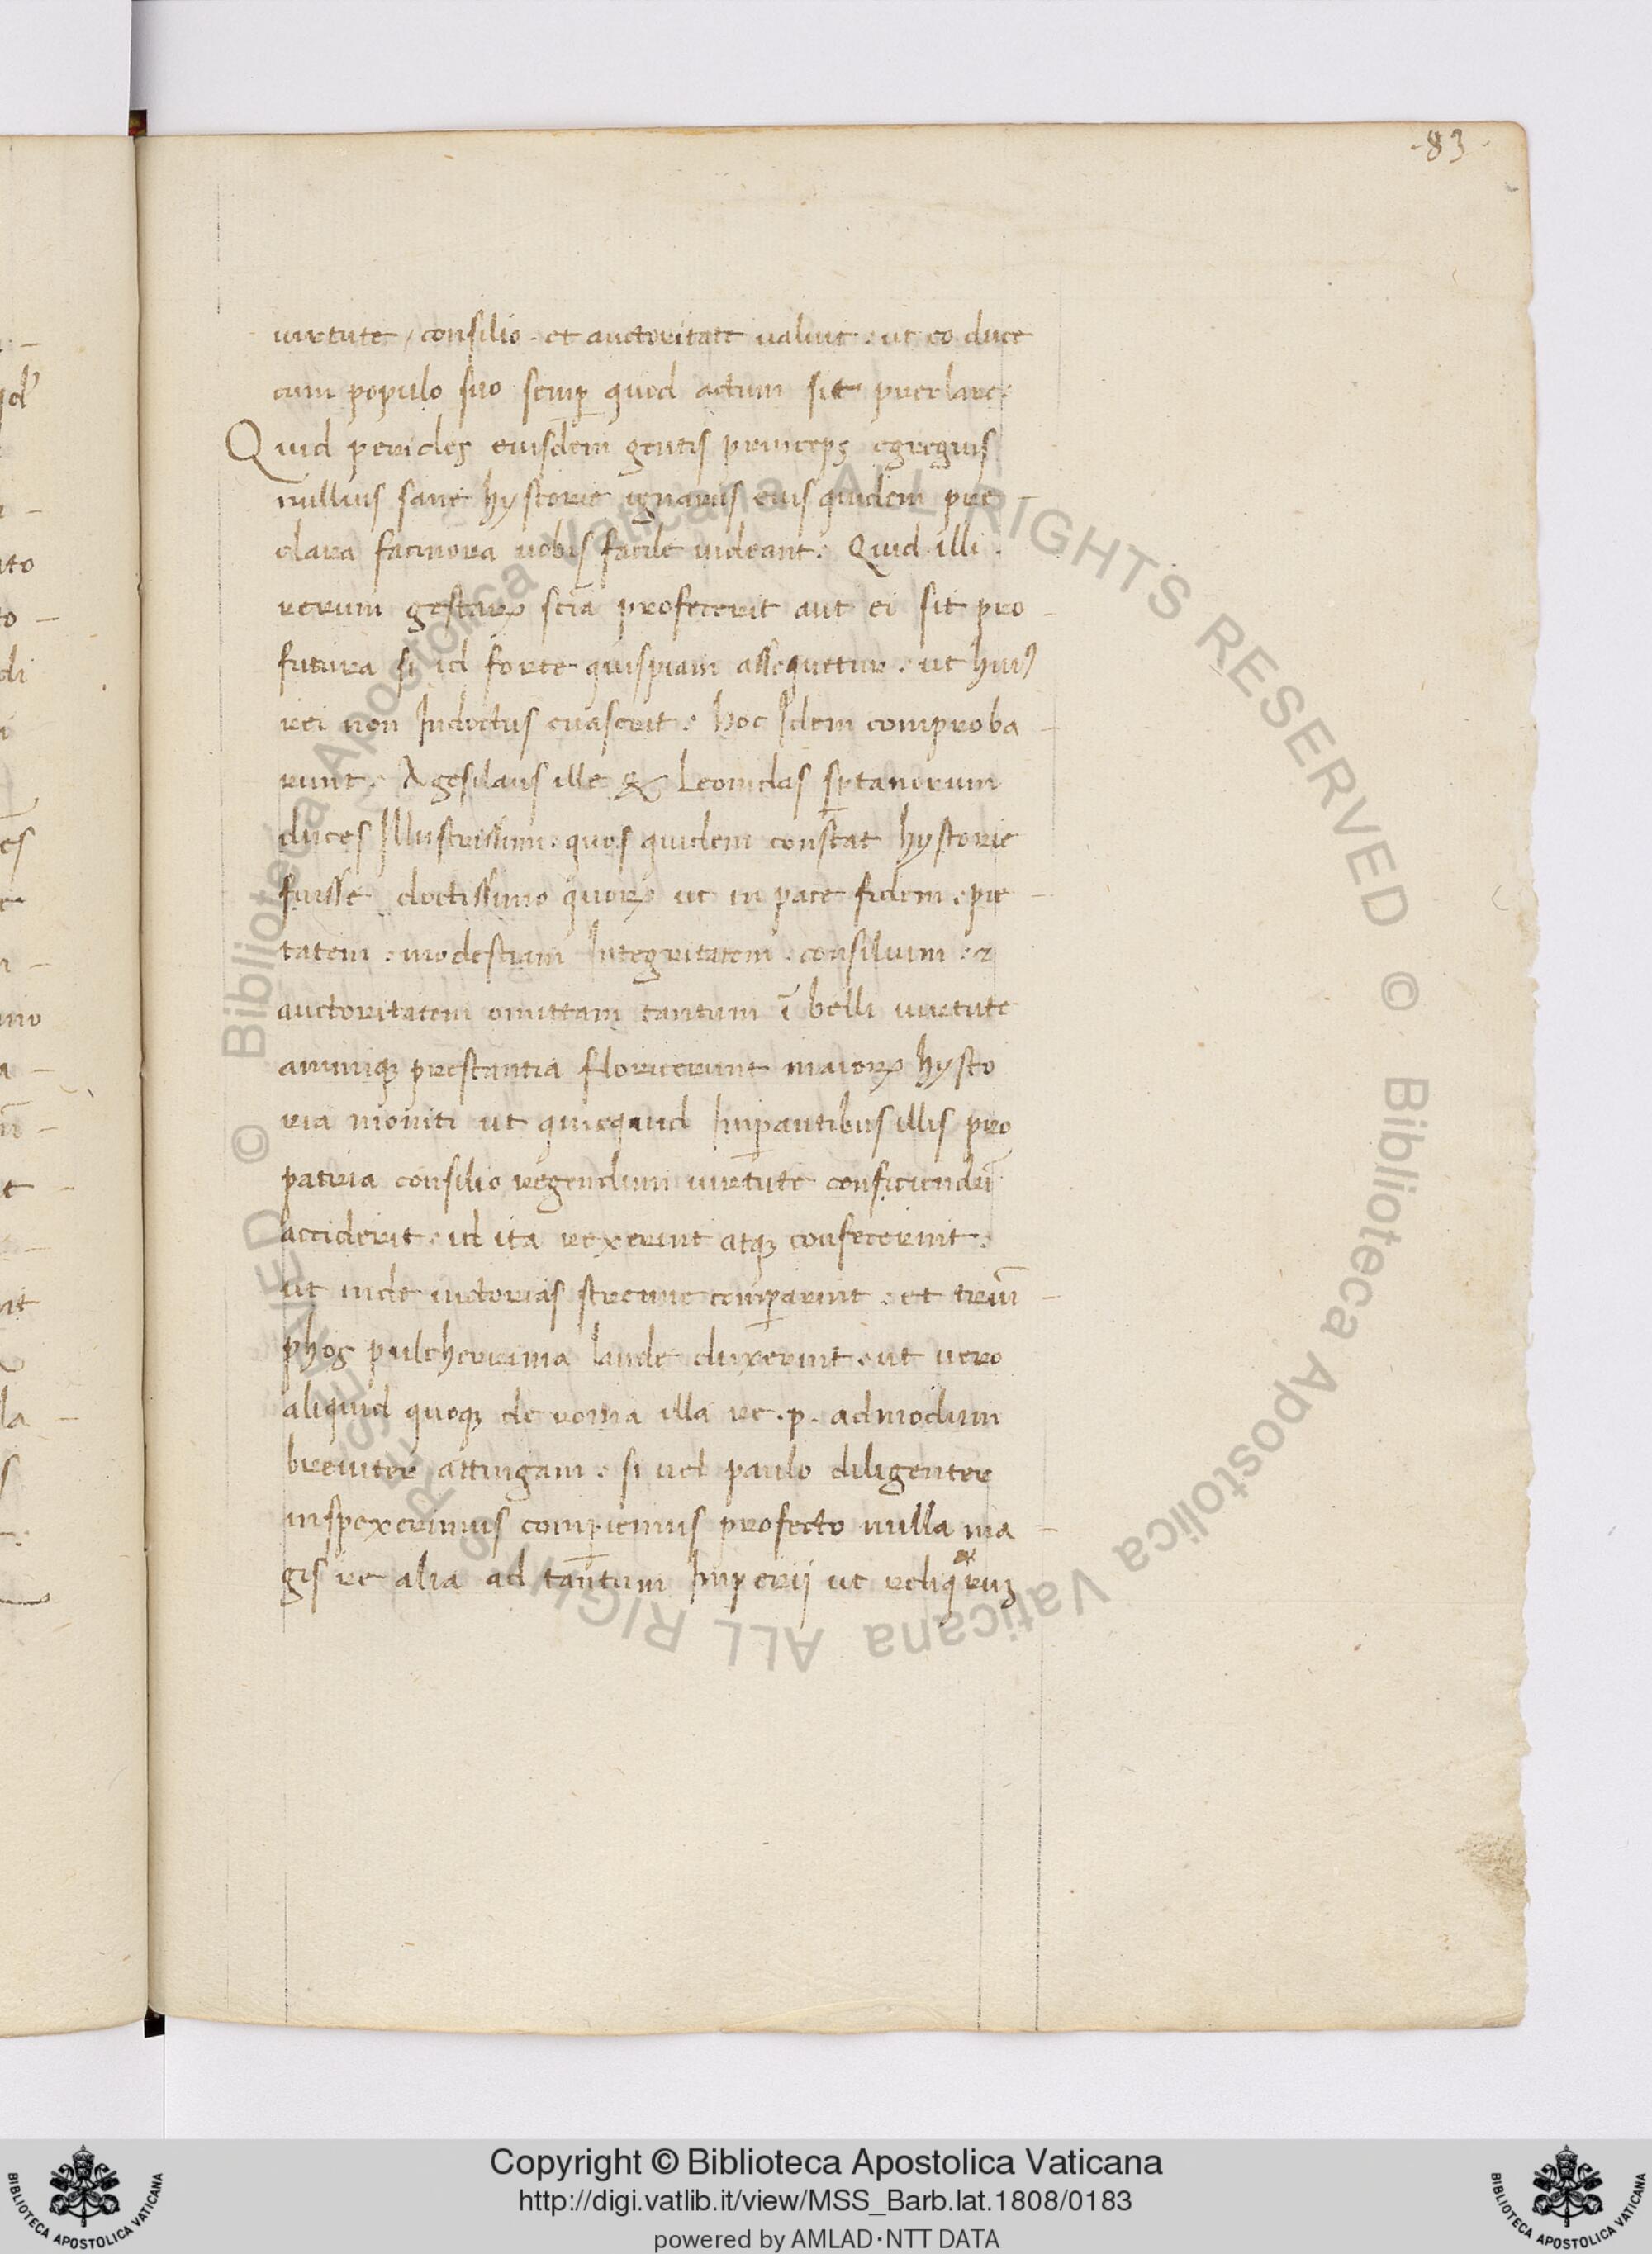 -83-
uirtute / consilio . et auctoritate ualuit . ut eo duce
cum populo suo semꝑ quod actum sit preclare .
Quid pericles eiusdem gentis princeps egregius
nullius sane hystorie ignarus eius quidem pre -
clara facinora uobis facile uideant . Quid illi .
rerum gestarꝝ scīa profecerit aut ei sit pro -
futura si id forte quispiam assequetur . ut huiꝰ
rei non Indoctus euaserit . hoc Idem comproba -
runt . Agesilaus ille & Leonidas sꝑtanorum
duces Illustrissimi . quos quidem constat hystorie
fuisse doctissimo quorꝝ ut in pace fidem . pie -
tatem . modestiam Integritatem . consilium . &
auctoritatem omittam tantum ī belli uirtute
animiqꝫ prestantia floruerunt maiorꝝ hysto
ria moniti ut quicquid Imꝑantibus illis pro
patria consilio regendum uirtute conficiendū
acciderit . id ita rexerint atqꝫ confecerint .
ut inde uictorias strenue comꝑarint . et triūm -
phos pulcherrima laude duxerint . ut uero
aliquid quoqꝫ de roma illa re . p . admodum
breuiter attingam . si uel paulo diligenter
inspexerimus comꝑiemus profecto nulla ma -
gis re alia ad tantum Imperij ut reliqruꝫ
© Biblioteca Apostolica Vaticana ALL RIGHTS RESERVED © Biblioteca Apostolica Vaticana ALL RIGHTS RESERVED
Copyright © Biblioteca Apostolica Vaticana
http://digi.vatlib.it/view/MSS_Barb.lat.1808/0183
powered by AMLAD·NTT DATA
BIBLIOTECA APOSTOLICA VATICANA
BIBLIOTECA APOSTOLICA VATICANA